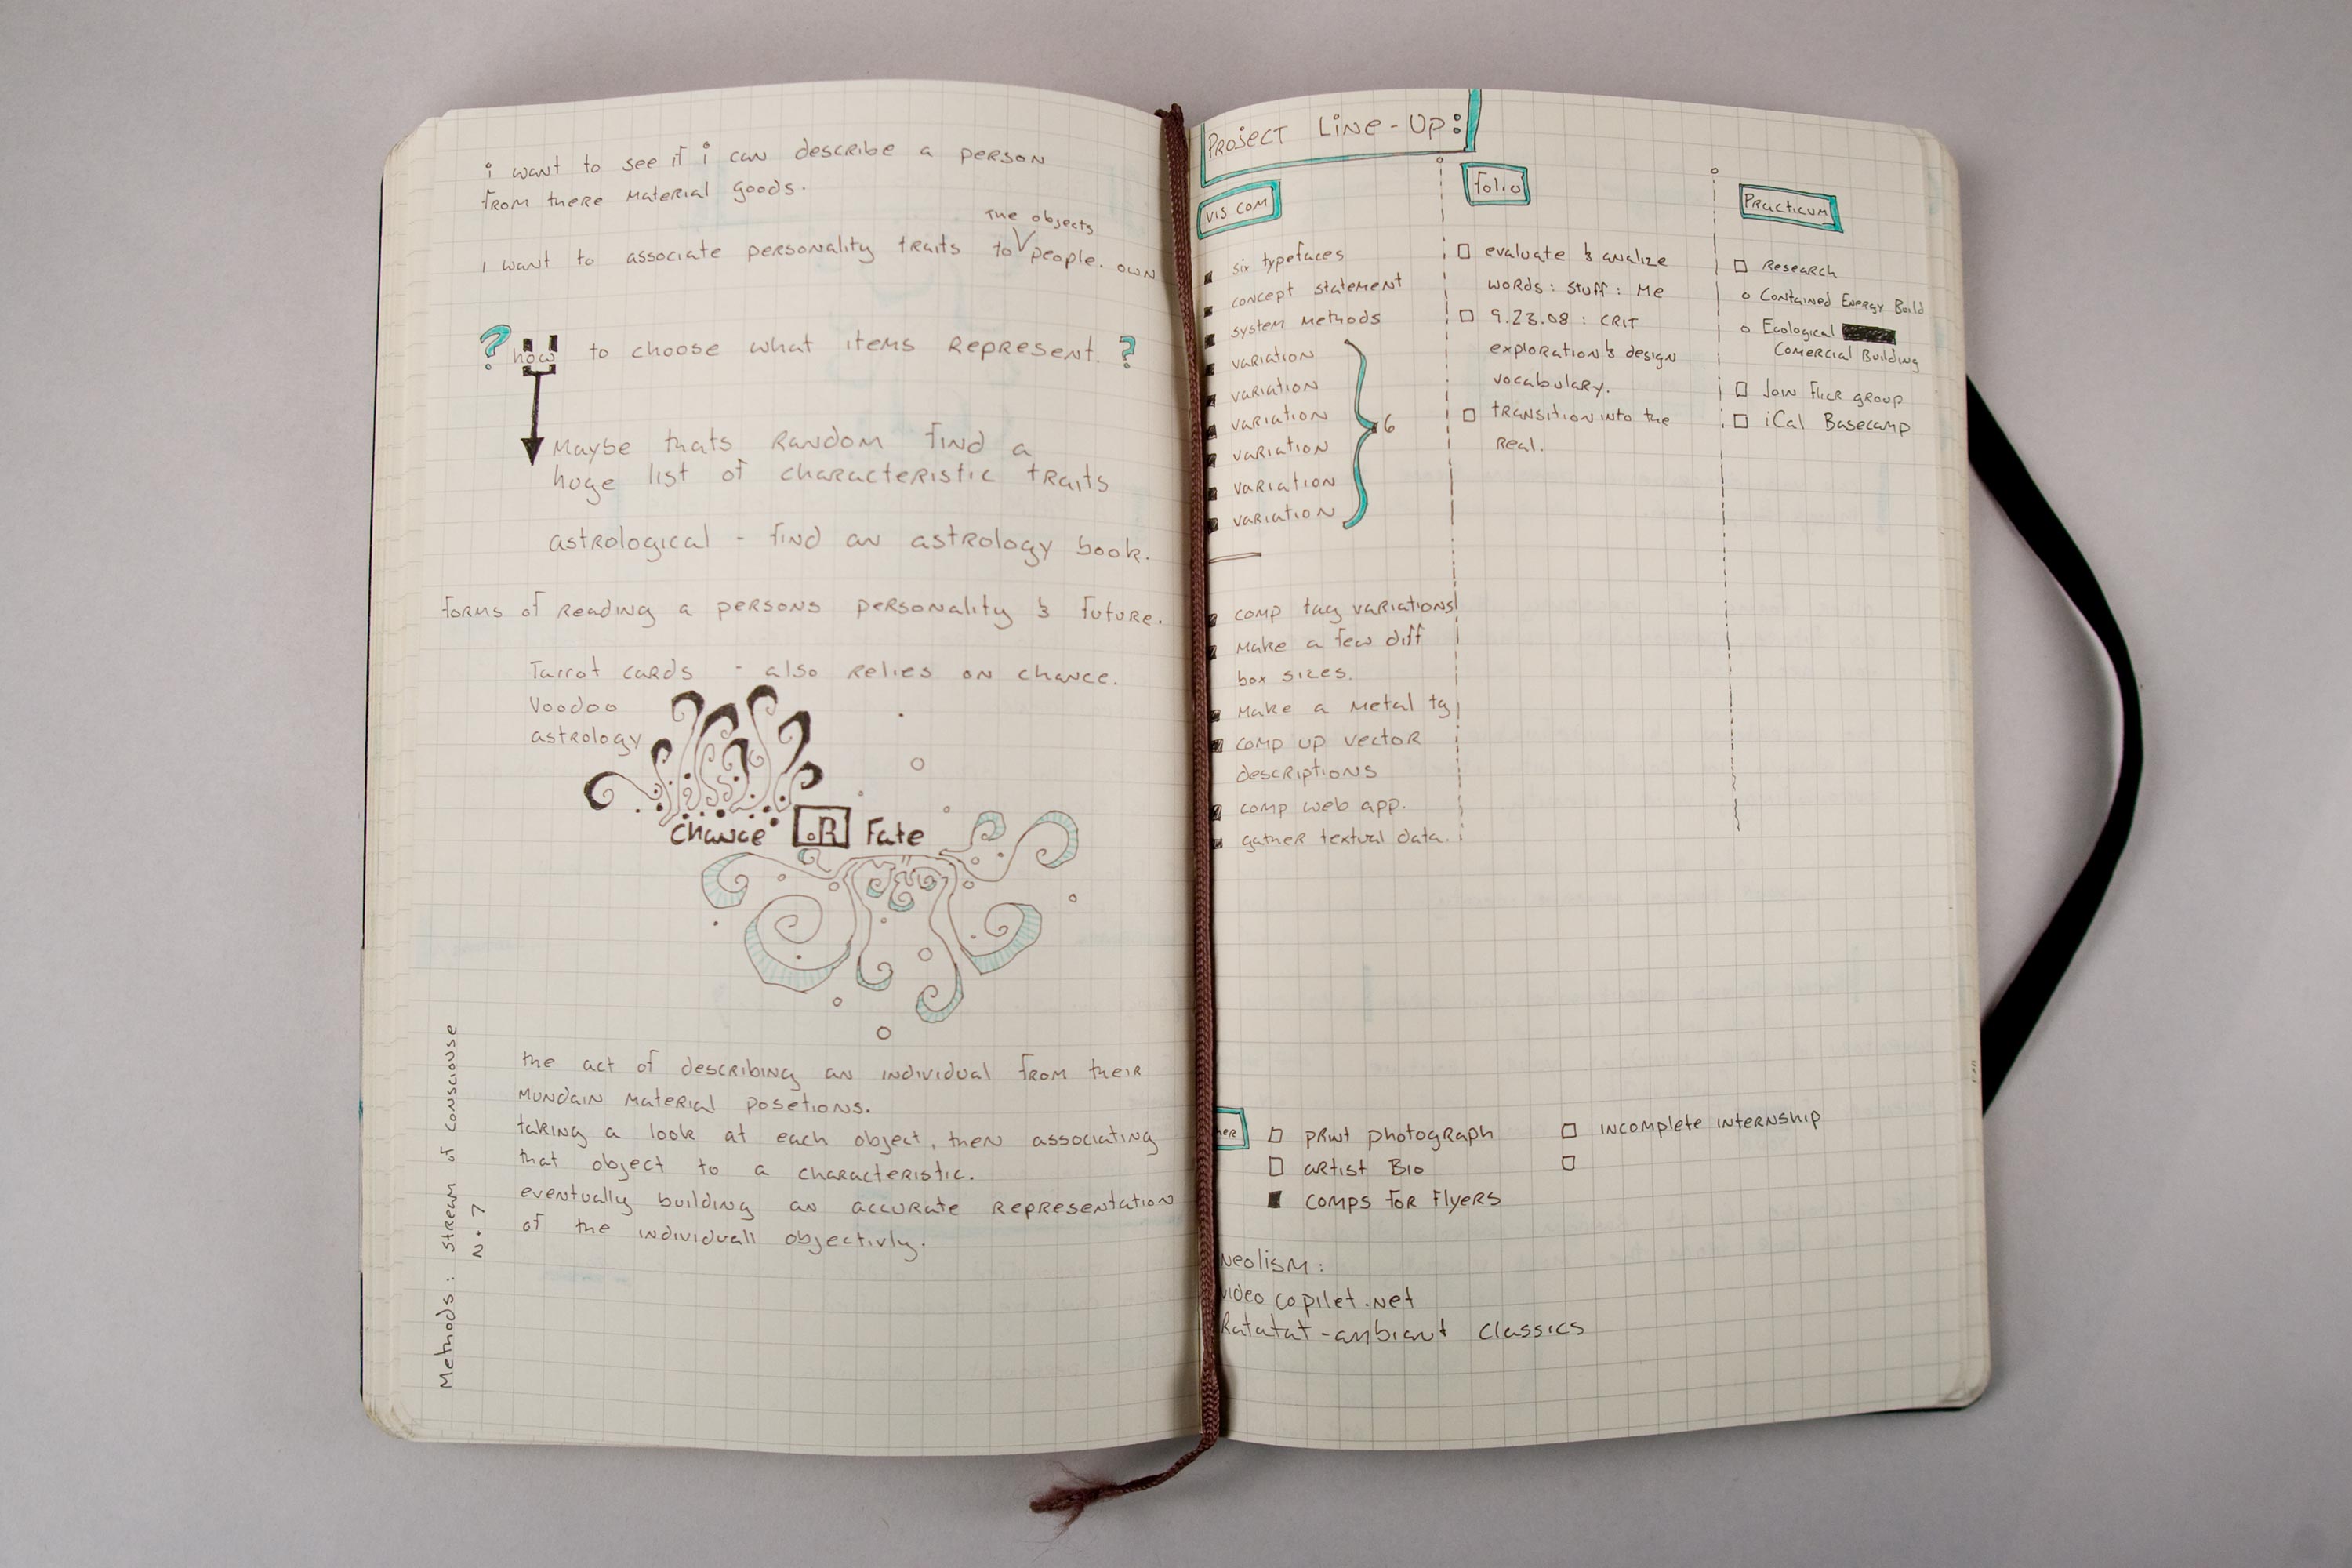 i want to see if i can describe a person
from there material goods.
The objects
I want to associate personality traits to V people. own
? how to choose what items represent. ?
Maybe thats random find a
huge list of characteristic traits
astrological - find an astrology book.
forms of reading a persons personality & future.
Tarrot cards - also relies on chance.
Voodoo
astrology
Chance OR Fate
the act of describing an individual from their
mundain material posetions.
taking a look at each object, then associating
that object to a characteristic.
eventually building an accurate representation
of the individuall objectivly.
Methods: stream of consciouse
2.7
Project Line-Up:
vis com
six typefaces
concept statement
system methods
variation
variation
variation
variation
variation
variation
6
comp tag variations
make a few diff
box sizes.
make a metal tg
comp up vector
descriptions
comp web app.
gather textual data.
folio
evaluate & analize
words: stuff: me
9.23.08: crit
exploration & design
vocabulary.
transition into the
real.
Practicum
Research
Contained Energy Build
Ecological
Comercial Building
Join flickr group
iCal Basecamp
print photograph
artist Bio
comps for flyers
incomplete internship
neolism:
video copilet.net
Ratatat-ambiant classics